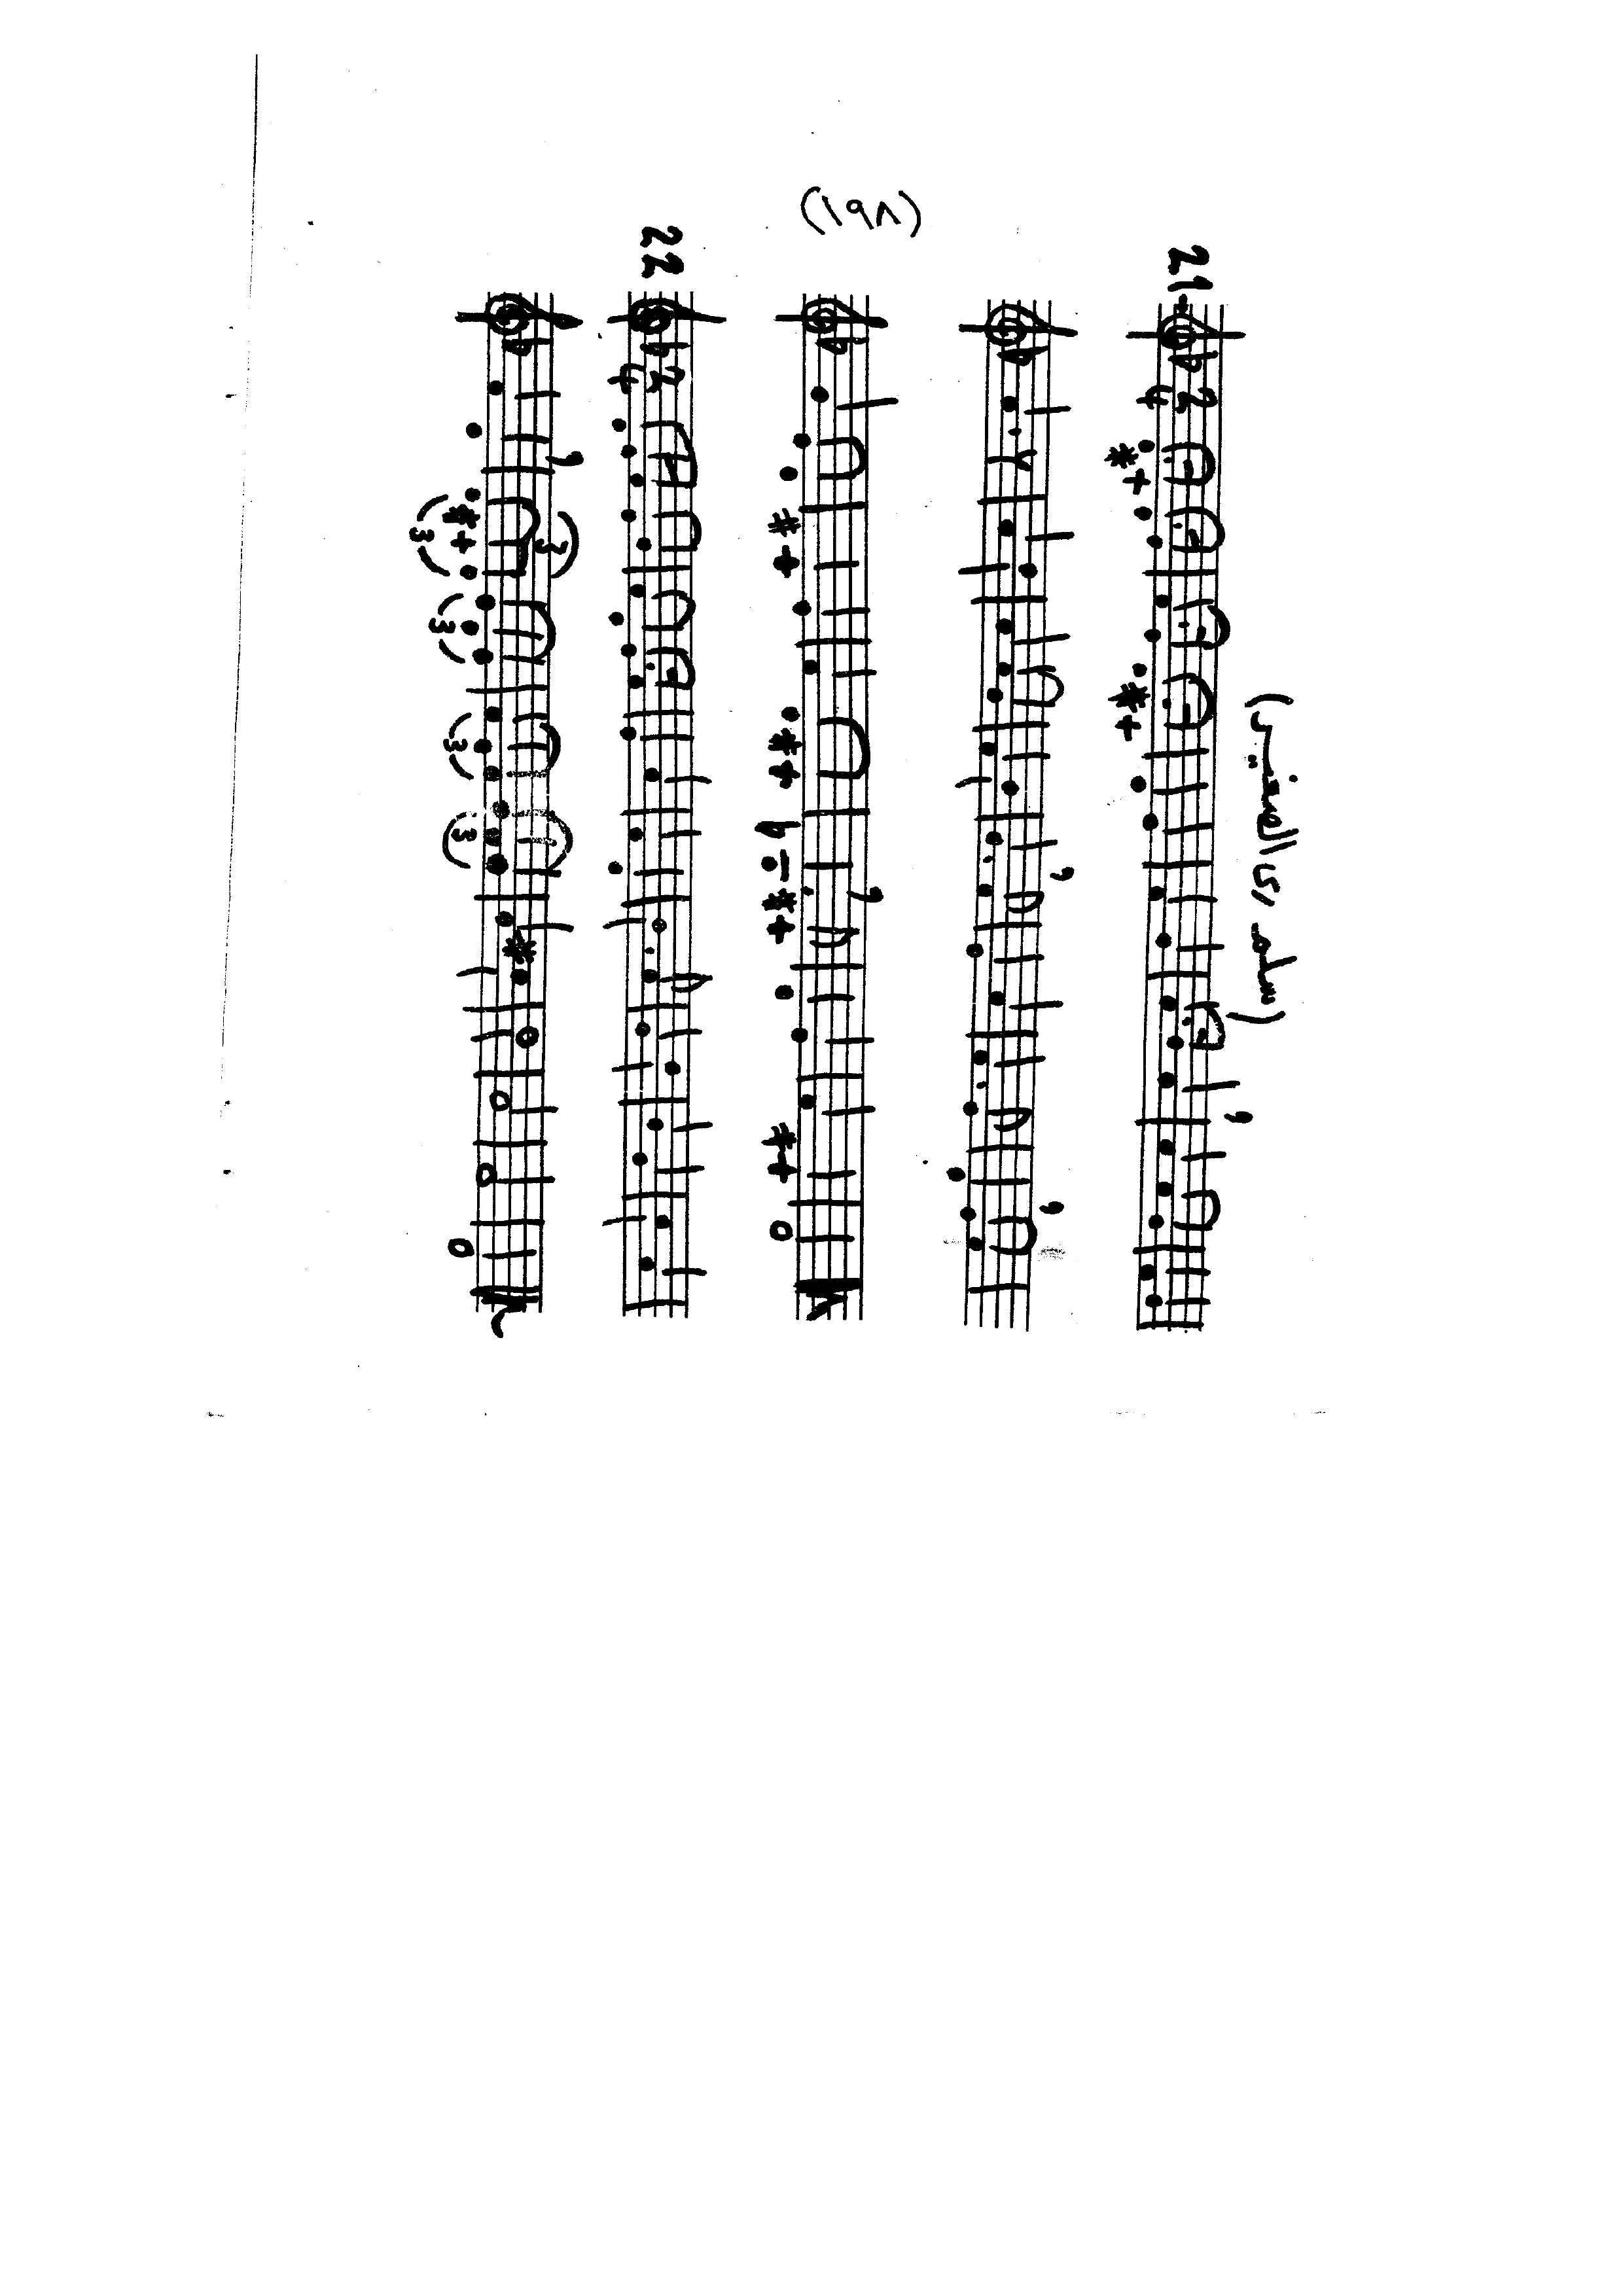 (١٩٨)
(سلم رى الصغير)
21-
2
4
22
2
4
3
3
3
3
3